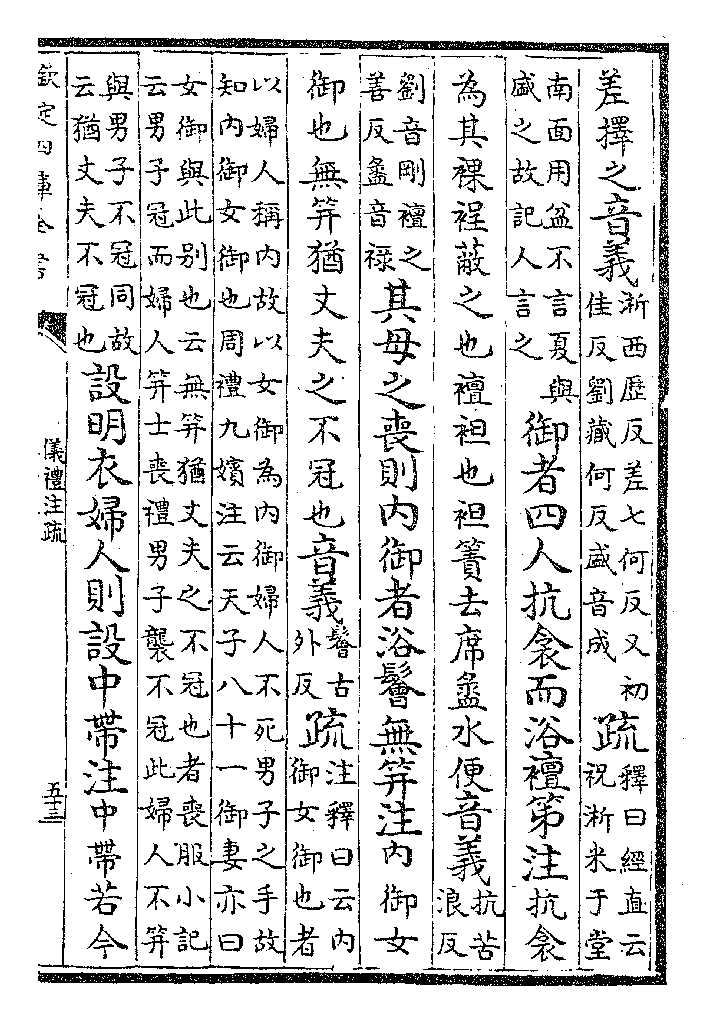 差擇之音義淅西歷反差七何反又初佳反劉藏何反盛音成疏釋曰經直云祝淅米于堂
南面用盆不言夏與盛之故記人言之御者四人抗衾而浴襢第注抗衾
為其裸裎蔽之也襢袒也袒簀去席盝水便音義抗苦浪反
劉音剛襢之善反盝音祿其母之喪則内御者浴鬠無笄注内御女
御也無笄猶丈夫之不冠也音義鬠古外反疏注釋曰云内御女御也者
以婦人稱内故以女御為内御婦人不死男子之手故
知内御女御也周禮九嬪注云天子八十一御妻亦曰
女御與此别也云無笄猶丈夫之不冠也者喪服小記
云男子冠而婦人笄士喪禮男子襲不冠此婦人不笄
與男子不冠同故云猶丈夫不冠也設明衣婦人則設中帶注中帶若今
欽定四庫全書
儀禮注疏
五十三